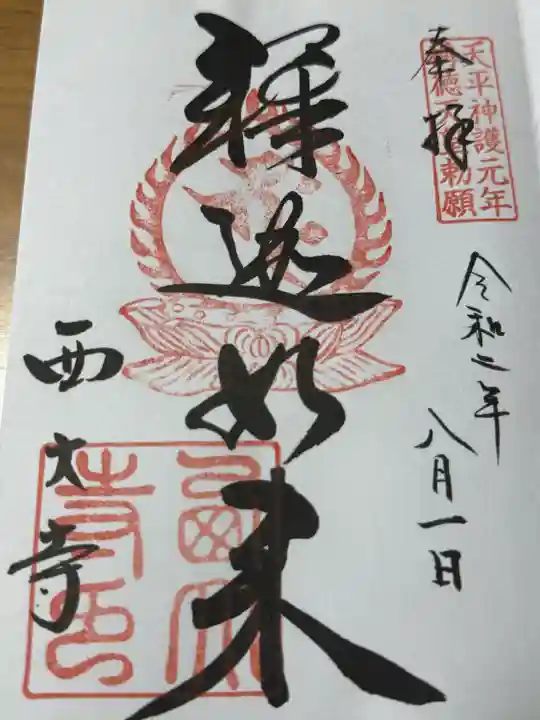 奉拝
天平神護元年
称徳天皇勅願
令和二年
八月一日
釋迦如来
西大寺
西大寺印